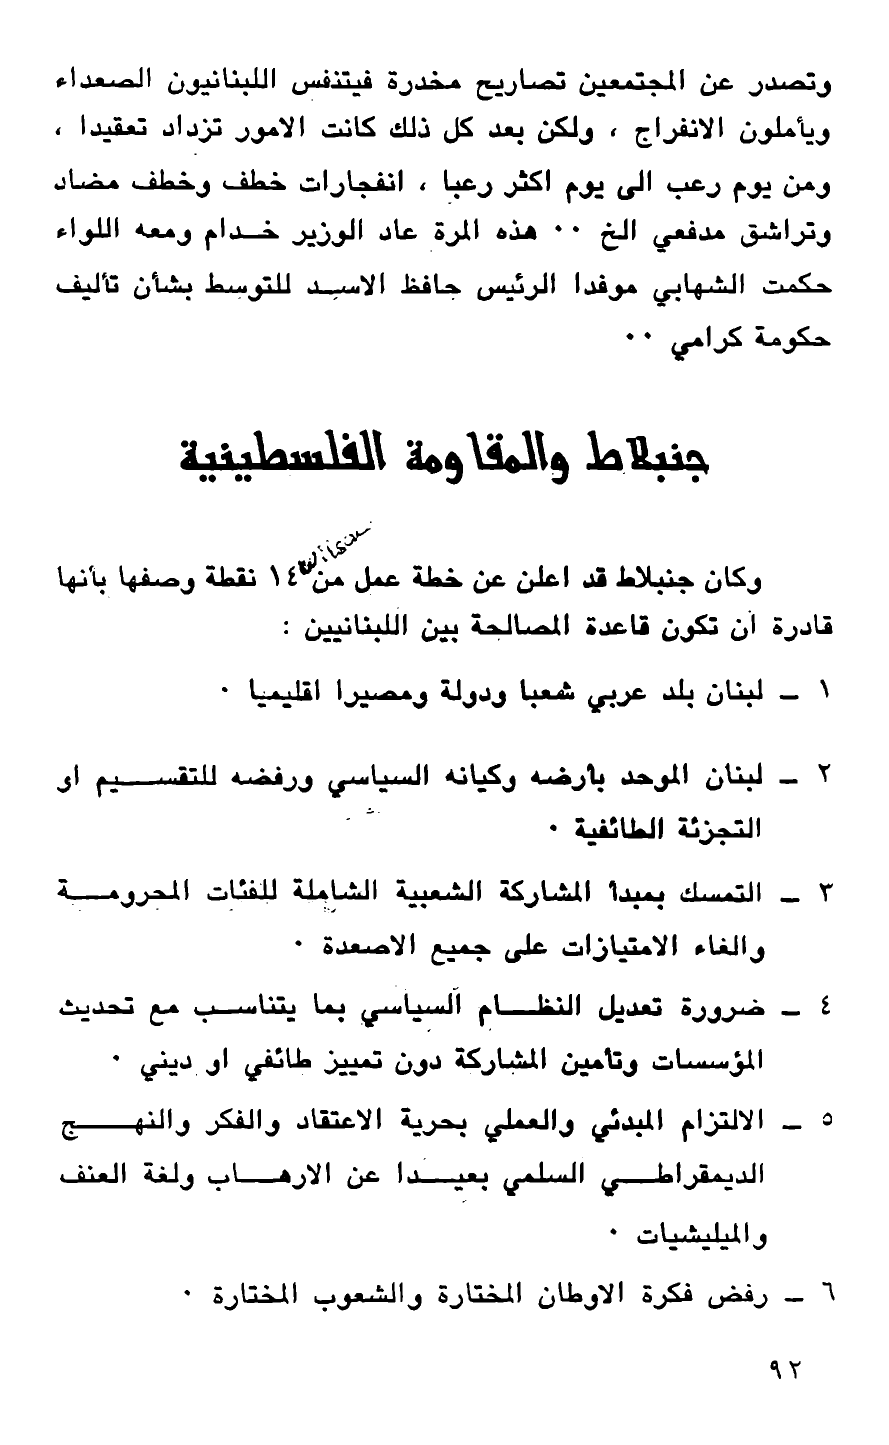 وتصدر عن المجتمعين تصاريح مخدرة فيتنفس اللبنانيون الصعداء
ويأملون الانفراج ، ولكن بعد كل ذلك كانت الامور تزداد تعقيدا ،
ومن يوم رعب الى يوم اكثر رعبا ، انفجارات خطف وخطف مضاد
وتراشق مدفعي الخ ٠٠ هذه المرة عاد الوزير خــدام ومعه اللواء
حكمت الشهابي موفدا الرئيس حافظ الاســد للتوسط بشأن تأليف
حكومة كرامي ٠٠
جنبلاط والمقاومة الفلسطينية
وكان جنبلاط قد اعلن عن خطة عمل من ١٤ نقطة وصفها بأنها
قادرة أن تكون قاعدة المصالحة بين اللبنانيين :
١ ــ لبنان بلد عربي شعبا ودولة ومصيرا اقليميا ٠
٢ ــ لبنان الموحد بأرضه وكيانه السياسي ورفضه للتقســـيم او
التجزئة الطائفية ٠
٣ ــ التمسك بمبدأ المشاركة الشعبية الشاملة للفئات المحرومـــة
والغاء الامتيازات على جميع الاصعدة ٠
٤ ــ ضرورة تعديل النظـــام السياسي بما يتناســب مع تحديث
المؤسسات وتأمين المشاركة دون تمييز طائفي او ديني ٠
٥ ــ الالتزام المبدئي والعملي بحرية الاعتقاد والفكر والنهـــج
الديمقراطـــي السلمي بعيـــدا عن الارهـــاب ولغة العنف
والميليشيات ٠
٦ ــ رفض فكرة الاوطان المختارة والشعوب المختارة ٠
٩٢